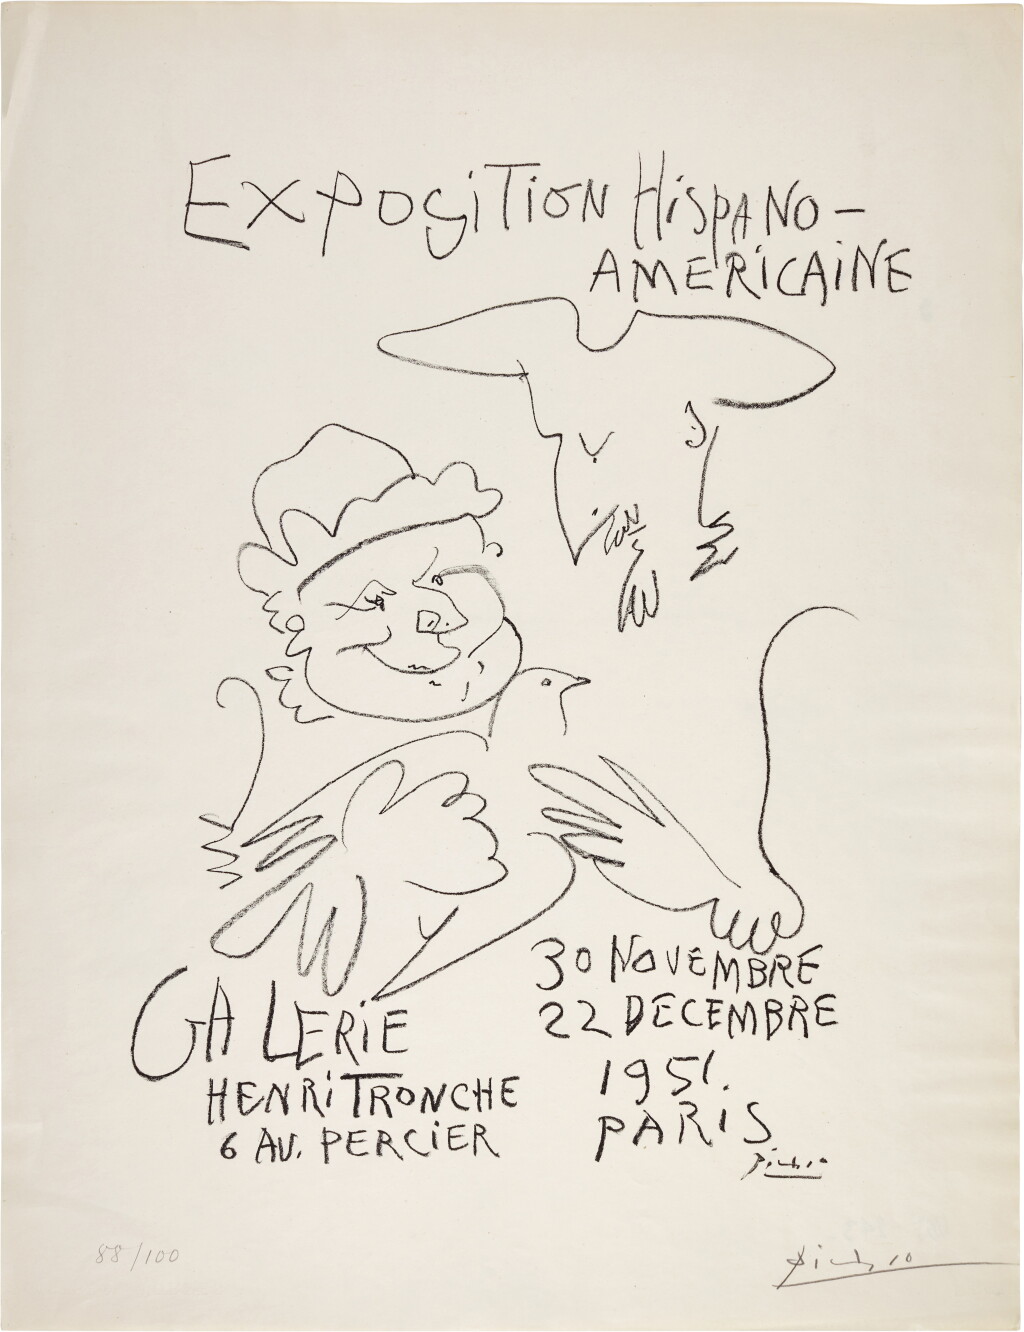 EXPOSITION HISPANO-
AMERICAINE
30 NOVEMBRE
22 DECEMBRE
1951.
PARIS
Picasso
GALERIE
HENRI TRONCHE
6 AV. PERCIER
88/100
Picasso